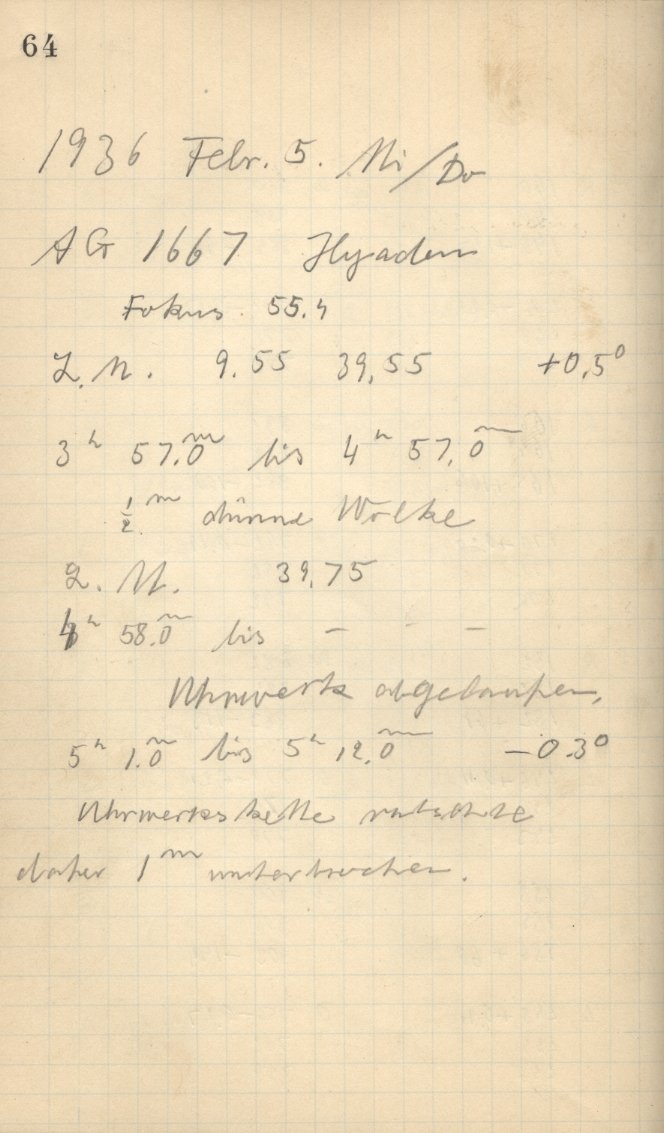 64
1936 Febr. 5. Mi/Do
AG 1667 Hyaden
Fokus 55.4
L.M. 9.55 39,55 +0,5°
3h 57.0m bis 4h 57,0m
½m dünne Wolke
L.M. 39,75
4h 58.0m bis – – –
Uhrwerk abgelaufen,
5h 1.0m bis 5h 12.0m –0.3°
Uhrwerkskette rutschte
daher 1m unterbrochen.